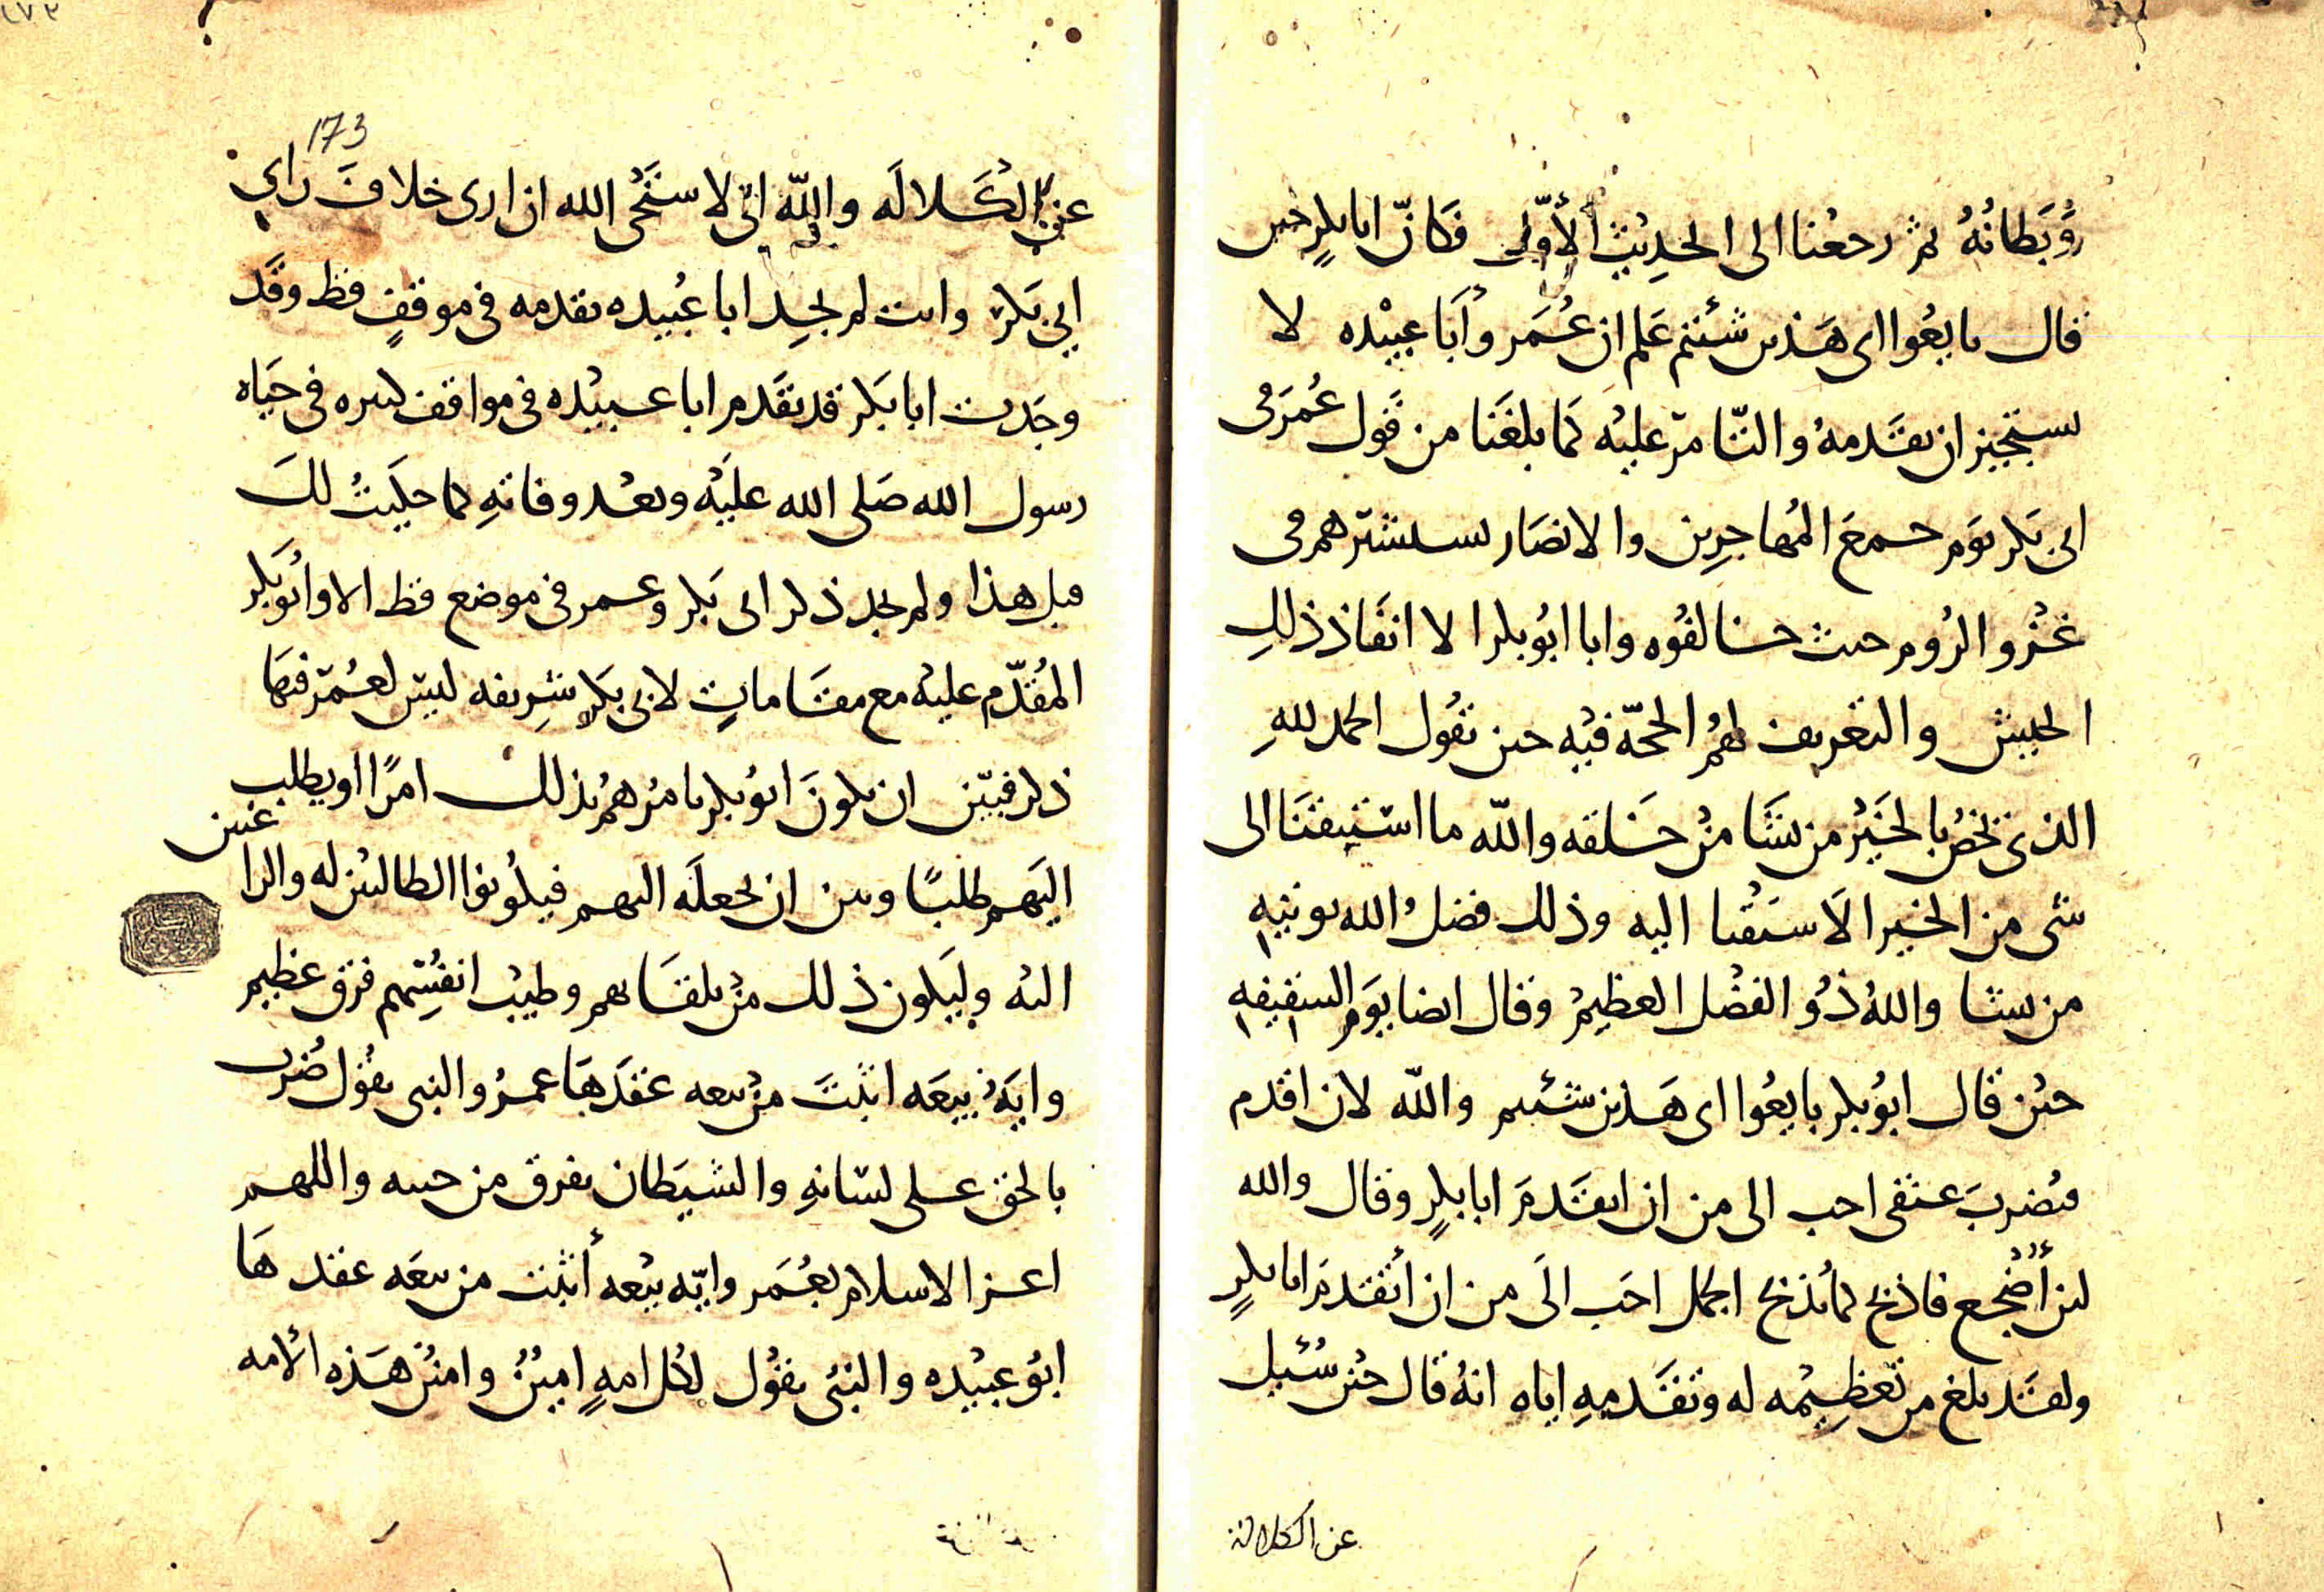 وبطانه ثم رجعنا الى الحديث الأول فكان ابا بكر حين
قال بايعوا اى هذين شئتم علم ان عمر وأبا عبيده لا
يستجيز ان يقدمه والتامر عليه كما بلغنا من قول عمر فى
ابى بكر يوم جمع المهاجرين والانصار يستشيرهم فى
غزو الروم حيث خالفوه وابا ابو بكر الا انفاذ ذلك
الجيش والتعريف لهم الحجة فيه حين يقول الحمد لله
الذى يخص بالخير من يشا من خلقه والله ما استبقنا الى
شى من الخير الا سبقنا اليه وذلك فضل الله يوتيه
من يشا والله ذو الفضل العظيم وقال ايضا يوم السقيفه
حين قال ابو بكر بايعوا اى هذين شئتم والله لان اقدم
فيضرب عنقى احب الى من ان اتقدم ابا بكر وقال والله
لئن أضجع فاذبح كما يذبح الجمل احب الى من ان أتقدم ابا بكر
ولقد بلغ من تعظيمه له وتقديمه اياه انه قال حين سئل
عن الكلالة
173
عن الكلاله والله انى لاستحى الله ان ارى خلاف راى
ابى بكر وانت لم تجد ابا عبيده تقدمه فى موقف قط وقد
وجدت ابا بكر قد تقدم ابا عبيده فى مواقف كثيره فى حياه
رسول الله صلى الله عليه وبعد وفاته كما حكيت لك
قبل هذا ولم تجد ذكر ابى بكر وعمر فى موضع قط الا وابو بكر
المقدم عليه مع مقامات لابى بكر شريفه ليس لعمر فيها
ذكر فبين ان يكون ابو بكر يامرهم بذلك امرا او يطلب
اليهم طلبا وبين ان يجعله اليهم فيكونوا الطالبين له والراغبين
اليه وليكون ذلك من تلقايهم وطيب انفسهم فرق عظيم
وايه بيعه اثبت من بيعه عقدها عمر والنبى يقول ضرب
بالحق على لسانه والشيطان يفرق من حسه واللهم
اعز الاسلام بعمر وايه بيعه أثبت من بيعه عقدها
ابو عبيده والنبى يقول لكل امه امين وامين هذه الامه